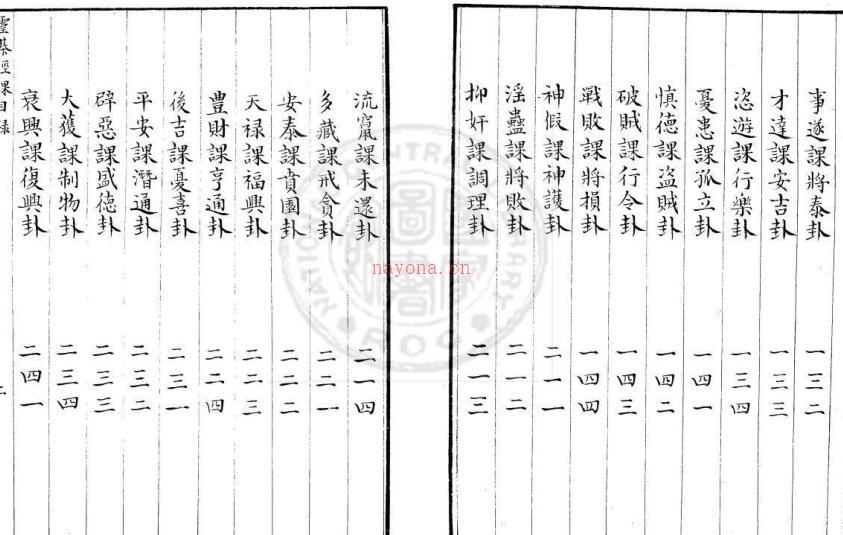 事遂課將泰卦 一三二
才達課安吉卦 一三三
恣遊課行樂卦 一三四
憂患課孤立卦 一四一
慎德課盜賊卦 一四二
破賊課行令卦 一四三
戰敗課將損卦 一四四
神假課神護卦 二一一
淫蠱課將敗卦 二一二
抑奸課調理卦 二一三
流竄課未還卦 二一四
多藏課戒貪卦 二二一
安泰課賁園卦 二二二
天禄課福興卦 二二三
豊財課亨通卦 二二四
後吉課憂喜卦 二三一
平安課潛通卦 二三二
辟惡課盛德卦 二三三
大獲課制物卦 二三四
衰興課復興卦 二四一
靈棊經課目録
nayona.cn